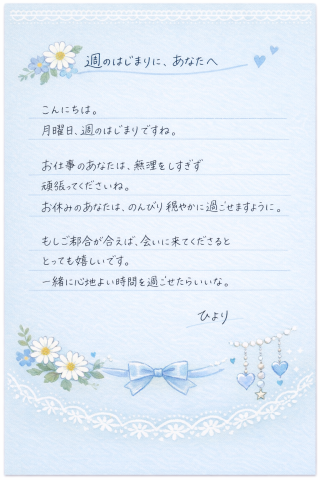 週のはじまりに、あなたへ
こんにちは。
月曜日、週のはじまりですね。
お仕事のあなたは、無理をしすぎず
頑張ってくださいね。
お休みのあなたは、のんびり穏やかに過ごせますように。
もしご都合が合えば、会いに来てくださると
とっても嬉しいです。
一緒に心地よい時間を過ごせたらいいな。
ひより